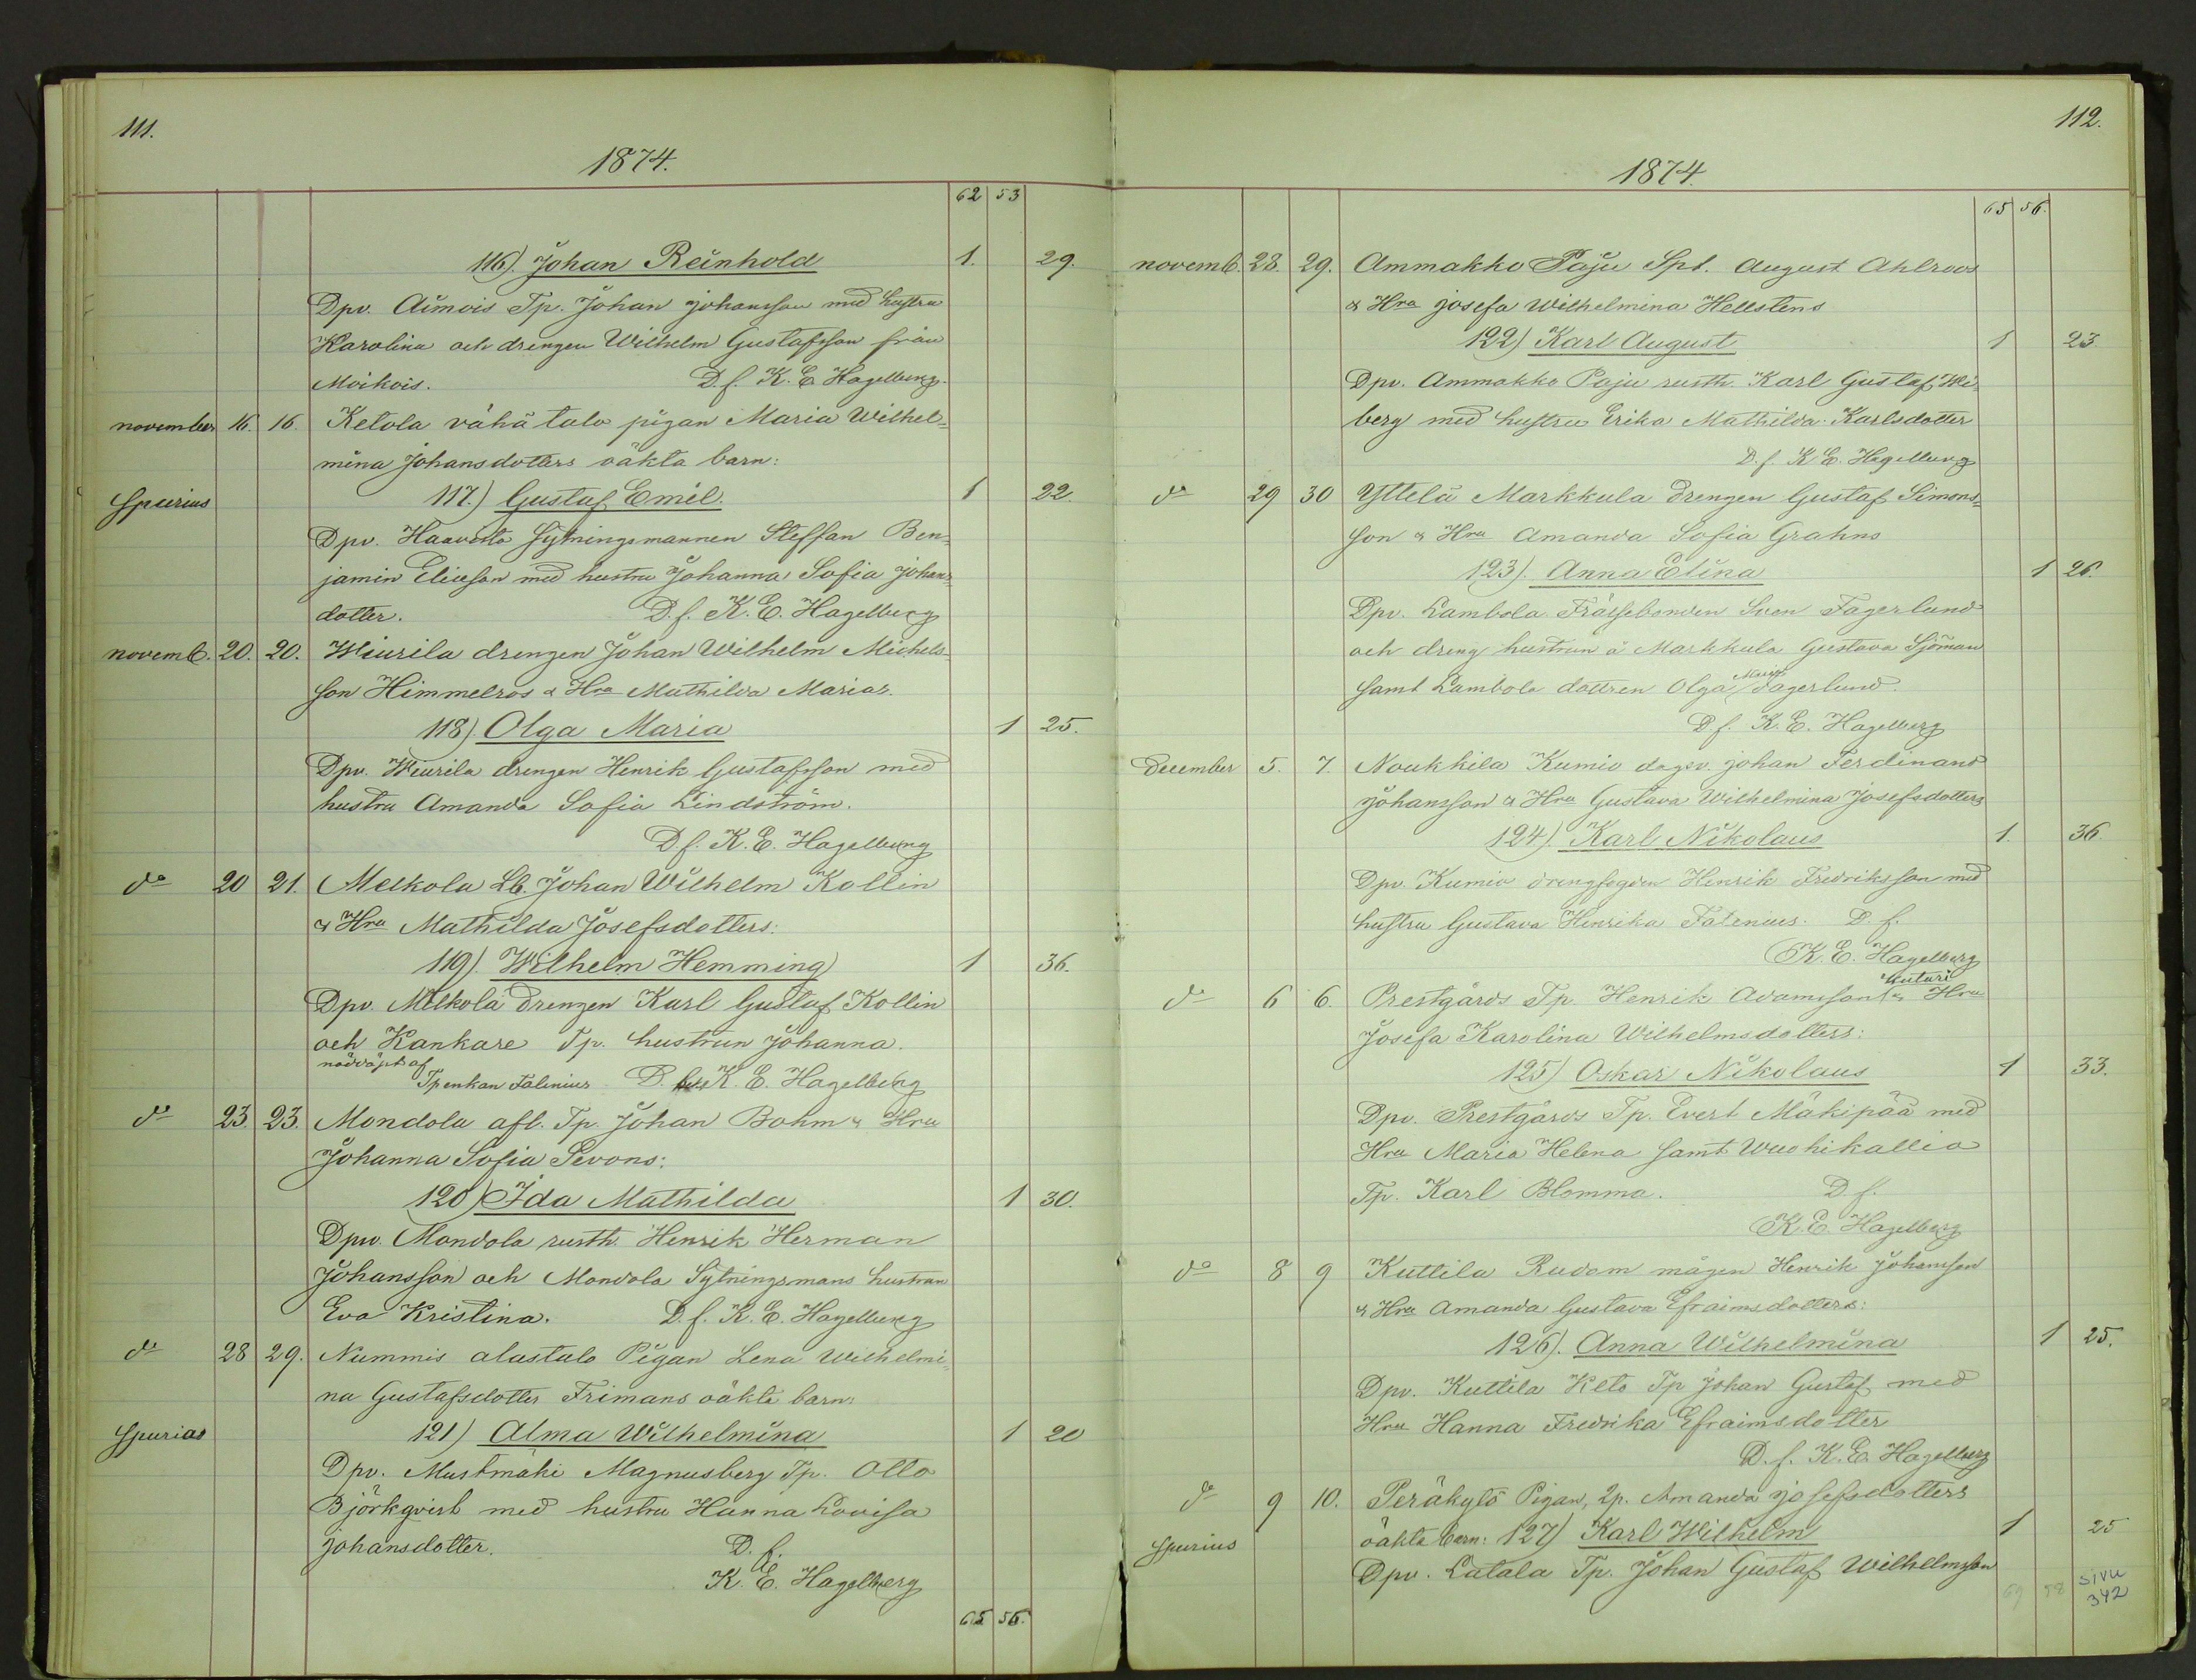 111.
1874.
62 53
116). Johan Reinhold 1. 29.
Dpv. Aimois Tp. Johan Johansson med hustru
Karolina och drengen Wilhelm Gustafsson från
Moikois. D. f. K. E. Hagelberg.
november 16. 16. Ketola vähätalo pigan Maria Wilhel=
mina Johansdotters oäkta barn:
Spurius 117.) Gustaf Emil. 1 22.
Dpv. Haavisto Sytningsmannen Steffan Ben=
jamin Eliesson med hustru Johanna Sofia Johans=
dotter. D. f. K. E. Hagelberg
novemb. 20. 20. Wiurila drengen Johan Wilhelm Michels=
son Himmelros & Hru Mathilda Marias.
118). Olga Maria 1 25.
Dpv. Wiurila drengen Henrik Gustafsson med
hustru Amanda Sofia Lindström.
D. f. K. E. Hagelberg
do 20 21. Melkola Lb. Johan Wilhelm Kollin
& Hru Mathilda Josefsdotters:
119). Wilhelm Hemming 1 36.
Dpv. Melkola drengen Karl Gustaf Kollin
och Kankare Tp. hustrun Johanna.
nöddöpt af
Tpenkan Falenius D. K. E. Hagelberg
do 23. 23. Mondola afl. Tp. Johan Bohm & Hru
Johanna Sofia Sevons:
120) Ida Mathilda 1 30.
Dpv. Mondola rusth. Henrik Herman
Johansson och Mondola Sytningsmans hustrun
Eva Kristina. D. f. K. E. Hagelberg
do 28 29. Nummis alastalo Pigan Lena Wilhelmi=
na Gustafsdotter Frimans oäkta barn:
Spurias 121) Alma Wilhelmina 1 20
Dpv. Mustmäki Magnusberg Tp. Otto
Björkqvist med hustru Hanna Lovisa
Johansdotter. D. f.
K. E. Hagelberg
65 56.
112.
1874.
65 56.
novemb. 28. 29. Ammakko Paju Spl. August Ahlroos
& Hru Josefa Wilhelmina Hellstens
122) Karl August 1 23
Dpv. Ammakko Paju rusth. Karl Gustaf Wi=
berg med hustru Erika Mathilda Karlsdotter
D. f. K. E. Hagelberg
do 29 30 Yttelä Markkula drengen Gustaf Simons=
son & Hru Amanda Sofia Grahns
123). Anna Elina 1 26.
Dpv. Lambola Frälsebonden Sven Fagerlund
och dreng hustrun å Markkula Gustava Sjöman
samt Lambola dottren Olga Maria Fagerlund.
D. f. K. E. Hagelberg
December 5. 7. Noukkila Kumio dagsv. Johan Ferdinand
Johansson & Hru Gustava Wilhelmina Josefsdotters
124) Karl Nikolaus 1. 36
Dpv. Kumio drengfogden Henrik Fredriksson med
hustru Gustava Henrika Falenius. D. f.
K. E. Hagelberg
do 6 6. Prestgårds Tp. Henrik Adamsson & Hru
Josefa Karolina Wilhelmsdotters:
125) Oskar Nikolaus 1 33.
Dpv. Prestgårds Tp. Evert Mäkipää med
Hru Maria Helena samt Wuohikallio
Tp. Karl Blomma. D. f.
K. E. Hagelberg
do 8 9 Kuttila Rudom mågen Henrik Johansson
& Hru Amanda Gustava Efraimsdotters:
126). Anna Wilhelmina 1 25.
Dpv. Kuttila Keto Tp Johan Gustaf med
Hru Hanna Fredrika Efraimsdotter
D. f. K. E. Hagelberg
do 9 10. Peräkylä Pigan, 2p. Amanda Josefsdotters
Spurius oäkta barn: 127) Karl Wilhelm 1 25
Dpv. Latala Tp. Johan Gustaf Wilhelmsson
69 58 sivu
342